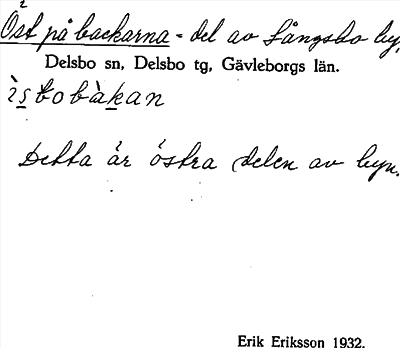 Öst på backarna - del av Långsbo by.
Delsbo sn, Delsbo tg, Gävleborgs län.
Detta är östra delen av byn.
Erik Eriksson 1932.